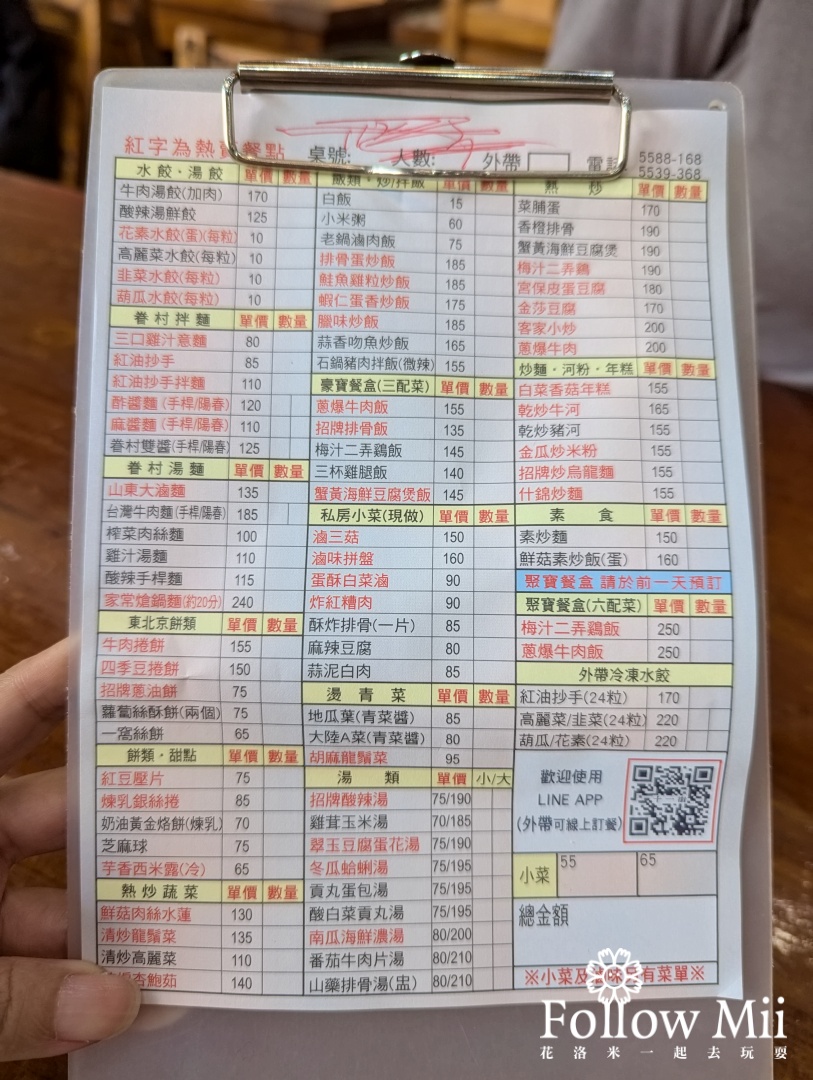 紅字為熱賣餐點 桌號: 人數: 外帶 電話 5588-168
5539-368
水餃・湯餃 單價 數量
牛肉湯餃(加肉) 170
酸辣湯鮮餃 125
花素水餃(蛋)(每粒) 10
高麗菜水餃(每粒) 10
韭菜水餃(每粒) 10
葫瓜水餃(每粒) 10
眷村拌麵 單價 數量
三口雞汁意麵 80
紅油抄手 85
紅油抄手拌麵 110
酢醬麵(手桿/陽春) 120
麻醬麵(手桿/陽春) 110
眷村雙醬(手桿/陽春) 125
眷村湯麵 單價 數量
山東大滷麵 135
台灣牛肉麵(手桿/陽春) 185
榨菜肉絲麵 100
雞汁湯麵 110
酸辣手桿麵 115
家常熗鍋麵(約20分) 240
東北京餅類 單價 數量
牛肉捲餅 155
四季豆捲餅 150
招牌蔥油餅 75
蘿蔔絲酥餅(兩個) 75
一窩絲餅 65
餅類・甜點 單價 數量
紅豆壓片 75
煉乳銀絲捲 85
奶油黃金烙餅(煉乳) 70
芝麻球 75
芋香西米露(冷) 65
熱炒蔬菜 單價 數量
鮮菇肉絲水蓮 130
清炒龍鬚菜 135
清炒高麗菜 110
杏鮑茹 140
飯類・炒/拌飯 單價 數量
白飯 15
小米粥 60
老鍋滷肉飯 75
排骨蛋炒飯 185
鮭魚雞粒炒飯 185
蝦仁蛋香炒飯 175
臘味炒飯 185
蒜香吻魚炒飯 165
石鍋豬肉拌飯(微辣) 155
豪寶餐盒(三配菜) 單價 數量
蔥爆牛肉飯 155
招牌排骨飯 135
梅汁二弄鷄飯 145
三杯雞腿飯 140
蟹黃海鮮豆腐煲飯 145
私房小菜(現做) 單價 數量
滷三菇 150
滷味拼盤 160
蛋酥白菜滷 90
炸紅糟肉 90
酥炸排骨(一片) 85
麻辣豆腐 80
蒜泥白肉 85
燙青菜 單價 數量
地瓜葉(青菜醬) 85
大陸A菜(青菜醬) 80
胡麻龍鬚菜 95
湯類 單價 小/大
招牌酸辣湯 75/190
雞茸玉米湯 70/185
翠玉豆腐蛋花湯 75/190
冬瓜蛤蜊湯 75/195
貢丸蛋包湯 75/195
酸白菜貢丸湯 75/195
南瓜海鮮濃湯 80/200
番茄牛肉片湯 80/210
山藥排骨湯(盅) 80/210
熱炒 單價 數量
菜脯蛋 170
香橙排骨 190
蟹黃海鮮豆腐煲 190
梅汁二弄鷄 190
宮保皮蛋豆腐 180
金莎豆腐 170
客家小炒 200
蔥爆牛肉 200
炒麵・河粉・年糕 單價 數量
白菜香菇年糕 155
乾炒牛河 165
乾炒豬河 155
金瓜炒米粉 155
招牌炒烏龍麵 155
什錦炒麵 155
素食 單價 數量
素炒麵 150
鮮菇素炒飯(蛋) 160
聚寶餐盒 請於前一天預訂
聚寶餐盒(六配菜) 單價 數量
梅汁二弄鷄飯 250
蔥爆牛肉飯 250
外帶冷凍水餃
紅油抄手(24粒) 170
高麗菜/韭菜(24粒) 220
葫瓜/花素(24粒) 220
歡迎使用
LINE APP
(外帶可線上訂餐)
小菜 55 65
總金額
※小菜及 味 有菜單※
Follow Mii
花洛米一起去玩耍